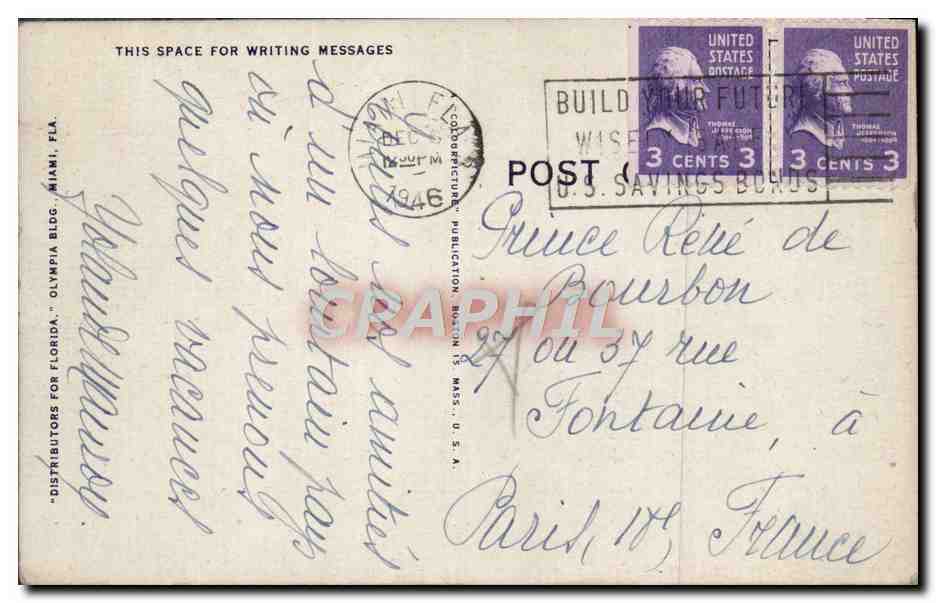 THIS SPACE FOR WRITING MESSAGES
Toutes nos amitiés
d'un lointain pays
où nous prenons
quelques vacances
Yolande
"DISTRIBUTORS FOR FLORIDA." OLYMPIA BLDG., MIAMI, FLA.
"COLOURPICTURE" PUBLICATION, BOSTON 15, MASS., U.S.A.
MIAMI, FLA.
DEC
PM
1946
BUILD YOUR FUTURE
WISELY
U.S. SAVINGS BONDS
UNITED
STATES
POSTAGE
THOMAS
JEFFERSON
3 CENTS 3
UNITED
STATES
POSTAGE
THOMAS
JEFFERSON
3 CENTS 3
POST
Prince René de
Bourbon
27 ou 37 rue
Fontaine, à
Paris,
France
CRAPHIL